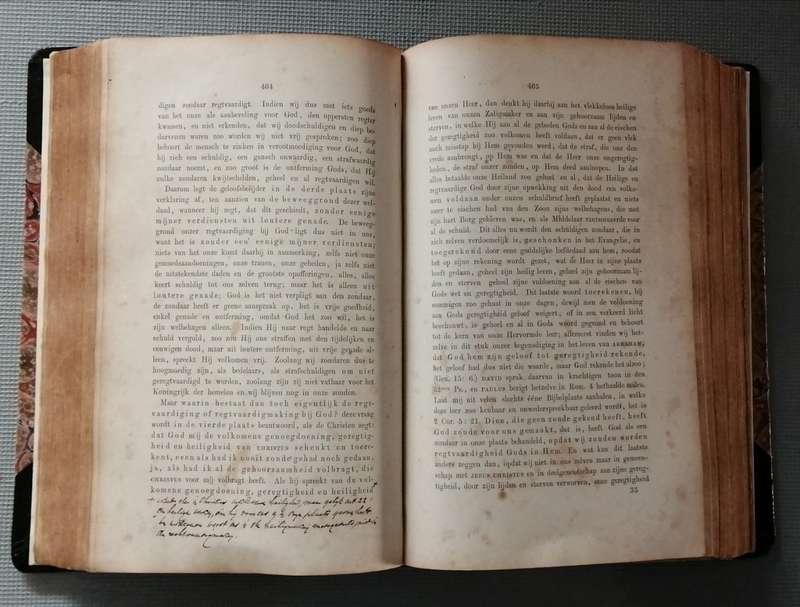 464
digen zondaar regtvaardigt. Indien wij dus met iets goeds
van het onze als aanbeveling voor God, den oppersten regter
kwamen, en niet erkenden, dat wij doodschuldigen en diep be-
dorvenen waren zoo worden wij niet vrij gesproken; zoo diep
behoort de mensch te zinken in verootmoediging voor God, dat
hij zich een schuldig, een gansch onwaardig, een strafwaardig
zondaar noemt, en zoo groot is de ontferming Gods, dat Hij
zulke zondaren kwijtschelden, geheel en al regtvaardigen wil.
Daarom legt de geloofsbelijder in de derde plaats zijne
verklaring af, ten aanzien van de beweeggrond dezer wel-
daad, wanneer hij zegt, dat dit geschiedt, zonder eenige
mijner verdiensten uit loutere genade. De beweeg-
grond onzer regtvaardiging bij God ligt dus niet in ons,
want het is zonder een' eenige mijner verdiensten;
niets van het onze komt daarbij in aanmerking, zelfs niet onze
gemoedsaandoeningen, onze tranen, onze gebeden, ja zelfs niet
de uitstekendste daden en de grootste opofferingen, alles, alles
keert schuldig tot ons zelven terug; maar het is alleen uit
loutere genade; God is het niet verpligt aan den zondaar,
de zondaar heeft er geene aanspraak op, het is vrije goedheid,
enkel genade en ontferming, omdat God het zoo wil, het is
zijn welbehagen alleen. Indien Hij naar regt handelde en naar
schuld vergold, zoo zou Hij ons straffen met den tijdelijken en
eeuwigen dood, maar uit loutere ontferming, uit vrije genade al-
leen, spreekt Hij volkomen vrij. Zoolang wij zondaren dus te
hoogmoedig zijn, als bedelaars, als strafschuldigen om niet
geregtvaardigd te worden, zoolang zijn zij niet vatbaar voor het
Koningrijk der hemelen en wij blijven nog in onze zonden.
Maar waarin bestaat dan toch eigentlijk de regt-
vaardiging of regtvaardigmaking bij God? deze vraag
wordt in de vierde plaats beantwoord, als de Christen zegt:
dat God mij de volkomene genoegdoening, geregtig-
heid en heiligheid van CHRISTUS schenkt en toere-
kent, even als had ik nooit zonde gehad noch gedaan,
ja, als had ik al de gehoorzaamheid volbragt, die
CHRISTUS voor mij volbragt heeft. Als hij spreekt van de vol-
komene genoegdoening, geregtigheid en heiligheid
465
van onzen Heer, dan denkt hij daarbij aan het vlekkeloos heilige
leven van onzen Zaligmaker en aan zijn gehoorzaam lijden en
sterven, in welke Hij aan al de geboden Gods en aan al de eischen
der geregtigheid zoo volkomen heeft voldaan, dat er geen vlek
noch misstap bij Hem gevonden werd; dat de straf, die ons den
vrede aanbrengt, op Hem was en dat de Heer onze ongeregtig-
heden, de straf onzer zonden, op Hem deed aanloopen. In dat
alles betaalde onze Heiland zoo geheel en al, dat de Heilige en
regtvaardige God door zijne opwekking uit den dood een volko-
men voldaan onder onzen schuldbrief heeft geplaatst en niets
meer te eischen had van den Zoon zijns welbehagens, die met
zijn hart Borg gebleven was, en als Middelaar rantsoeneerde voor
al de schuld. Dit alles nu wordt den schuldigen zondaar, die in
zich zelven verdoemelijk is, geschonken in het Evangelie, en
toegerekend door eene goddelijke liefdedaad aan hem, zoodat
het op zijne rekening wordt gezet, wat de Heer in zijne plaats
heeft gedaan, geheel zijn heilig leven, geheel zijn gehoorzaam lij-
den en sterven geheel zijne voldoening aan al de eischen van
Gods wet en geregtigheid. Dit laatste woord toerekenen, bij
sommigen zoo gehaat in onze dagen, dewijl men de voldoening
aan Gods geregtigheid geloof weigert, of in een verkeerd licht
beschouwt, is geheel en al in Gods woord gegrond en behoort
tot de kern van onze Hervormde leer; allereerst vinden wij het-
zelve in dit stuk onzer begenadiging in het leven van ABRAHAM,
dat God hem zijn geloof tot geregtigheid rekende,
het geloof had dus niet die waarde, maar God rekende het alzoo;
(Gen. 15: 6.) DAVID sprak daarvan in krachtigen toon in den
32sten Ps., en PAULUS bezigt hetzelve in Rom. 4 herhaalde malen.
Laat mij uit velen slechts ééne Bijbelplaats aanhalen, in welke
deze leer zoo kenbaar en onwedersprekbaar geleerd wordt, het is
2 Cor. 5: 21. Dien, die geen zonde gekend heeft, heeft
God zonde voor ons gemaakt, dat is, heeft God als een
zondaar in onze plaats behandeld, opdat wij zouden worden
regtvaardigheid Gods in Hem. En wat kan dit laatste
anders zeggen dan, opdat wij niet in ons zelven maar in gemeen-
schap met JEZUS CHRISTUS en in deelgenootschap aan zijne gereg-
tigheid, door zijn lijden en sterven verworven, onze geregtigheid
35